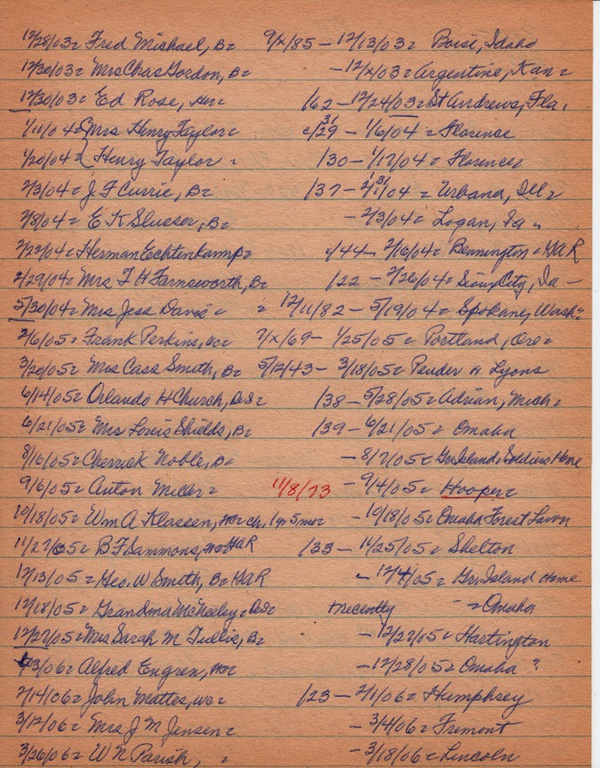 12/28/03 = Fred Michael, B= 9/x/85 - 12/13/03 = Boise, Idaho
12/30/03 = Mrs Chas Gordon, B= - 12/x/03 = Argentine, Kan =
12/30/03 = Ed Rose, /62 - 12/24/03 = St Andrews, Fla.
1/11/04 = Mrs Henry Taylor = /29 - 1/6/04 = Florence
1/20/04 = Henry Taylor = /30 - 1/17/04 = Florence
2/3/04 = J F Currie, B= /37 - 1/31/04 = Urbana, Ill =
2/8/04 = E K Slusser, B= - 2/3/04 = Logan, Ia =
2/22/04 = Herman Echtenkamp = /44 - 2/16/04 = Bennington = GAR
2/29/04 = Mrs F H Farnsworth, B= /22 - 2/26/04 = Sioux City, Ia -
5/30/04 = Mrs Jess Davis = = 12/11/82 - 5/19/04 = Spokane, Wash =
2/6/05 = Frank Perkins, 7/x/69 - 1/25/05 = Portland, Ore =
3/20/05 = Mrs Cass Smith, B= 5/12/43 - 3/18/05 = Pender = Lyons
6/14/05 = Orlando H Church, /38 - 5/28/05 = Adrian, Mich =
6/21/05 = Mrs Louis Shields, B= /39 - 6/21/05 = Omaha
8/16/05 = Cherrick Noble, B= - 8/7/05 = Gr Island = Soldiers Home
9/6/05 = Anton Miller = 11/8/73 - 9/4/05 = Hooper =
10/18/05 = Wm A Klassen, ch, 1yr 5mo = - 10/18/05 = Omaha Forest Lawn
11/27/05 = B F Sammons, GAR /33 - 11/25/05 = Shelton
12/13/05 = Geo. W Smith, B= GAR - 12/4/05 = Gr Island Home
12/18/05 = Grandma = + recently - = Omaha
12/27/05 = Mrs Sarah M Tullis, B= - 12/22/05 = Hartington
1/3/06 = Alfred Engren, - 12/28/05 = Omaha ?
2/14/06 = John Mattes, /23 - 2/1/06 = Humphrey
3/12/06 = Mrs J M Jensen = - 3/4/06 = Fremont
3/26/06 = W N Parish, = - 3/18/06 = Lincoln